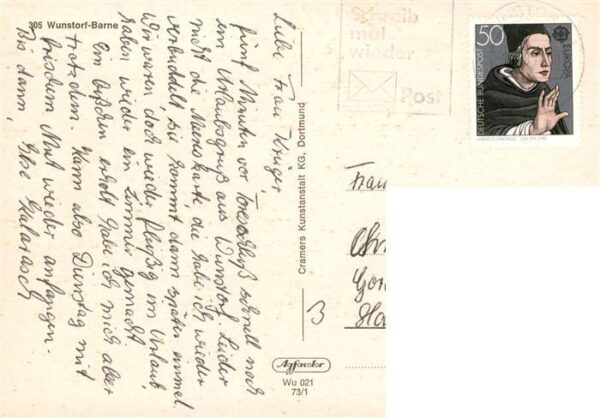 305 Wunstorf-Barne
Liebe Frau Krüger,
fünf Minuten vor Toresschluß schnell noch
ein Urlaubsgruß aus Wunstorf. Leider
nicht die Meerkarte die habe ich wieder
verbuddelt, sie kommt dann später einmal.
Wir waren doch wieder fleißig im Urlaub
haben wieder ein Zimmer gemacht.
Ein bißchen erholt habe ich mich aber
trotzdem. Kann also Dienstag mit
frischem Mut wieder anfangen.
Bis dann, Ihre
Cramers Kunstanstalt KG, Dortmund
Schreib
mal
wieder
Post
50
DEUTSCHE BUNDESPOST
EUROPA
ALBERTUS MAGNUS
Frau
Chr
Ha
3
Agfacolor
Wu 021
73/1